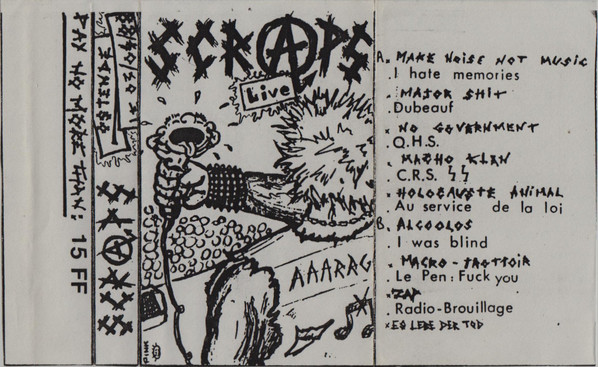 PAY NO MORE THAN: 15 FF
OSTENDE
SCRAPS
SCRAPS
Live
AAARRG
PINK
A. MAKE NOISE NOT MUSIC
. I hate memories
. MAJOR SHIT
. Dubeauf
. NO GOVERNMENT
. Q.H.S.
. MACHO KLAN
. C.R.S. ϟϟ
. HOLOCAUSTE ANIMAL
. Au service de la loi
B. ALCOOLOS
. I was blind
. MACRO-TROTTOIR
. Le Pen: Fuck you
. ZAP
. Radio-Brouillage
. ES LEBE DER TOD